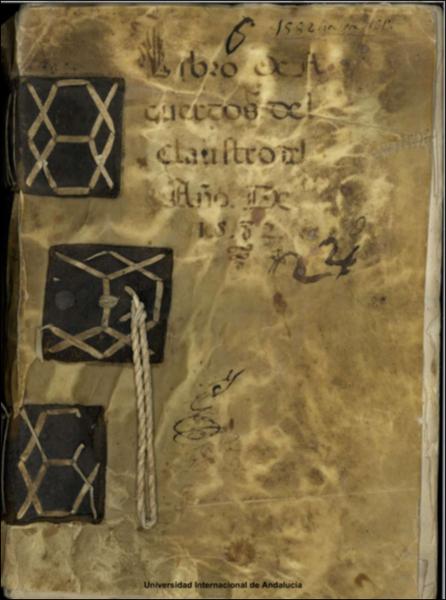 6
1582
Libro de A
cuerdos del
claustro del
Año. De
1582
24
Universidad Internacional de Andalucía